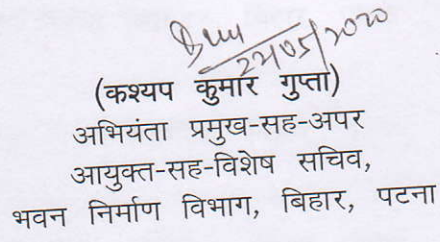 22/05/2020
(कश्यप कुमार गुप्ता)
अभियंता प्रमुख-सह-अपर
आयुक्त-सह-विशेष सचिव,
भवन निर्माण विभाग, बिहार, पटना